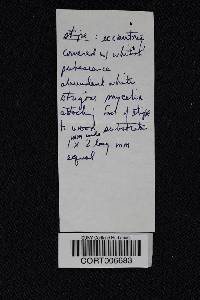 stipe: eccentric
covered w/ whitish
pubescence
abundant white
strigose mycelia
attaching root of stipe
to woody substrate
mm wide
1 x 2 long mm
equal
CORT006683